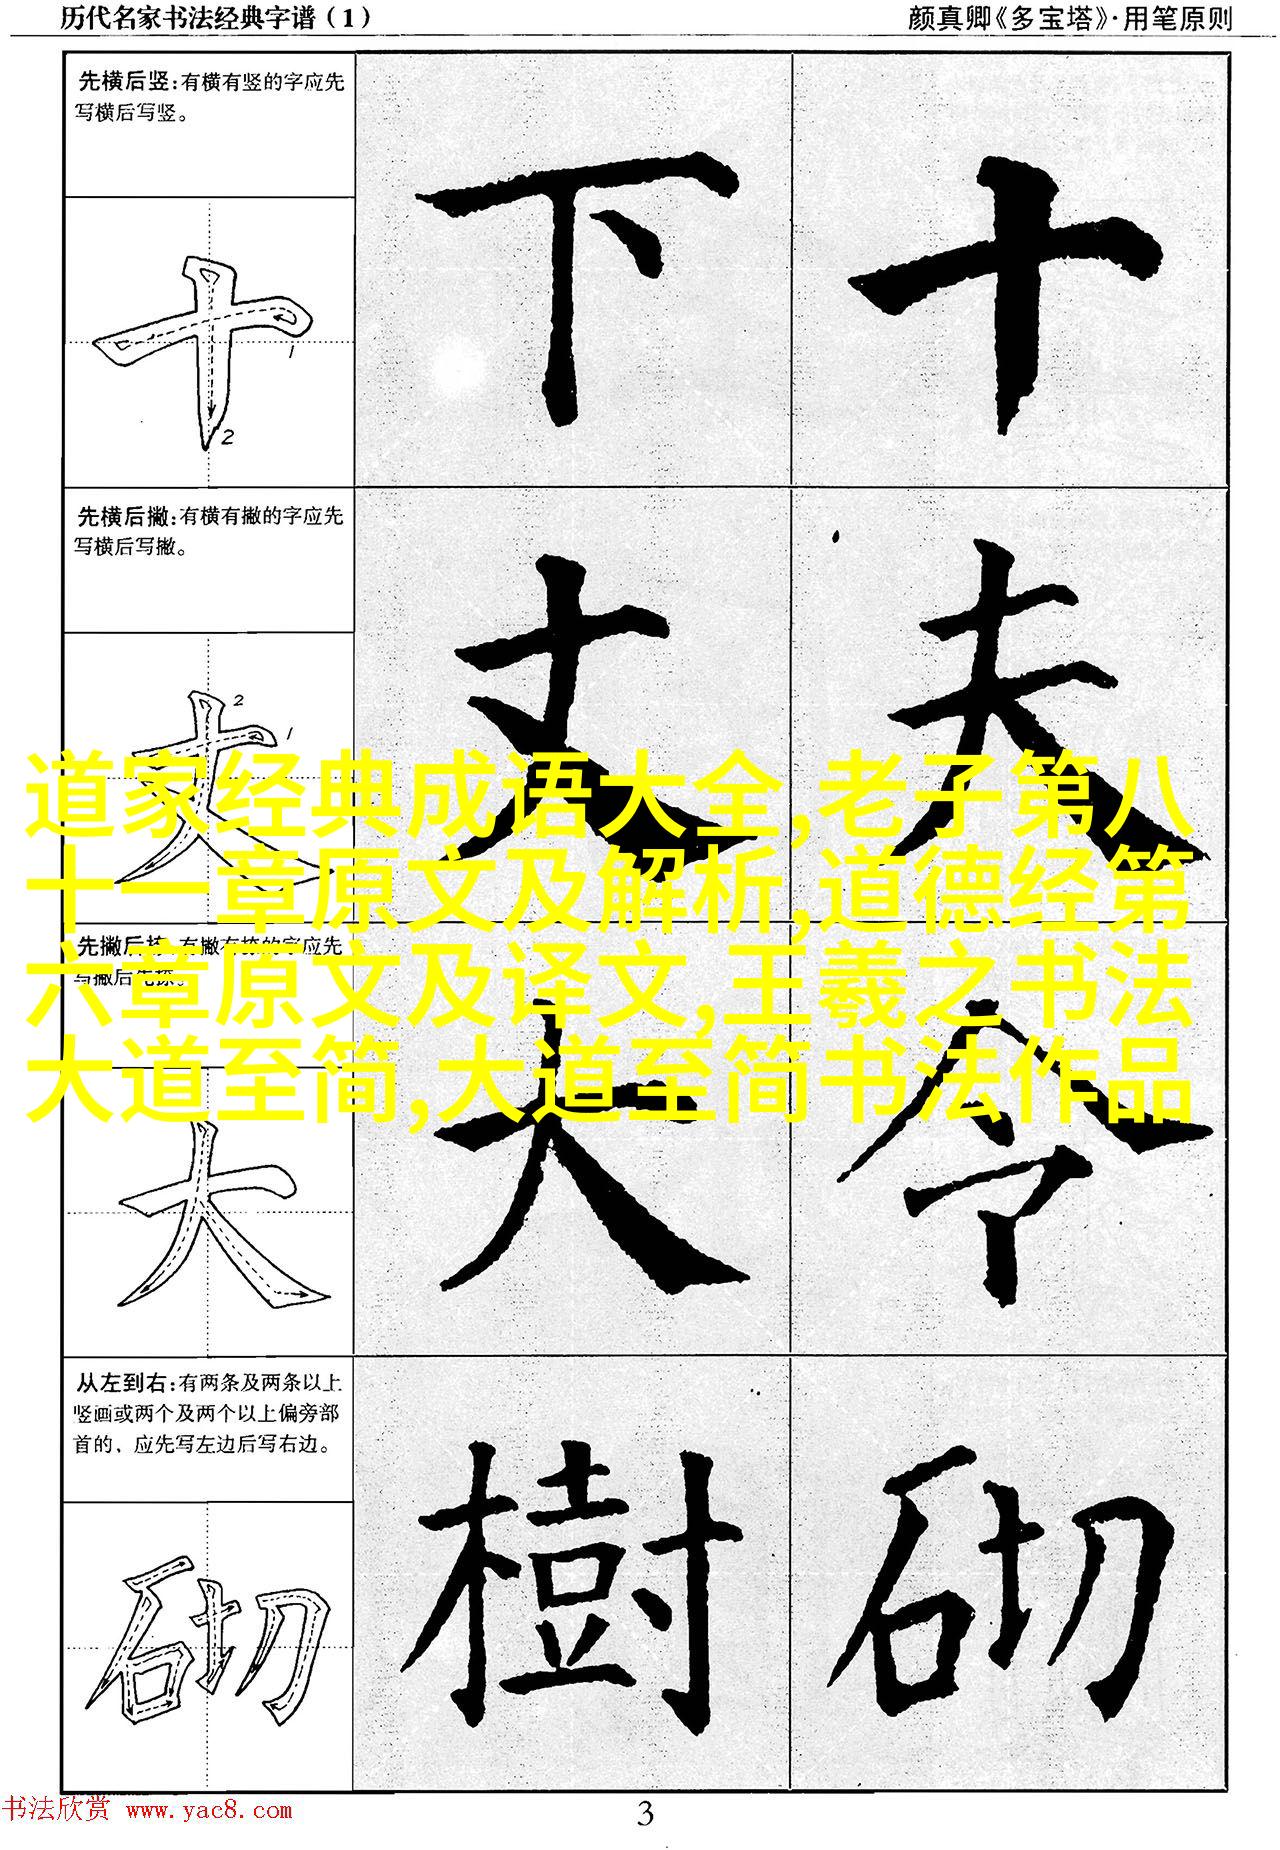 历代名家书法经典字谱（1）
颜真卿《多宝塔》·用笔原则
先横后竖：有横有竖的字应先
写横后写竖。
下 十
1
2
先横后撇：有横有撇的字应先
写横后写撇。
丈 夫
2
1
道家经典成语大全,老子第八
十一章原文及解析,道德经第
六章原文及译文,王羲之书法
大道至简,大道至简书法作品
先撇后捺：有撇有捺的字应先
写撇后先捺。
大 令
从左到右：有两条及两条以上
竖画或两个及两个以上偏旁部
首的，应先写左边后写右边。
樹 砌
书法欣赏 www.yac8.com
3